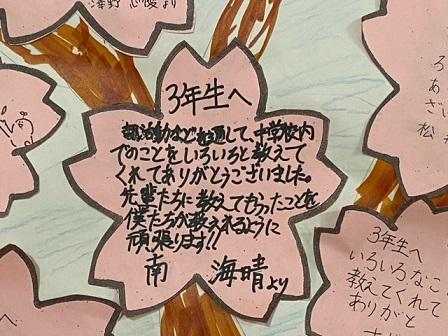 澤野 心優より
3年生へ
部活動などを通して、中学校内
でのことをいろいろと教えて
くれてありがとうございました。
先輩たちに教えてもらったことを
僕たちが教えれるように
頑張ります!!
南 海晴より
3年生へ
いろいろなこ
教えてくれて
ありがと
ろ
あ
さ
松
へ